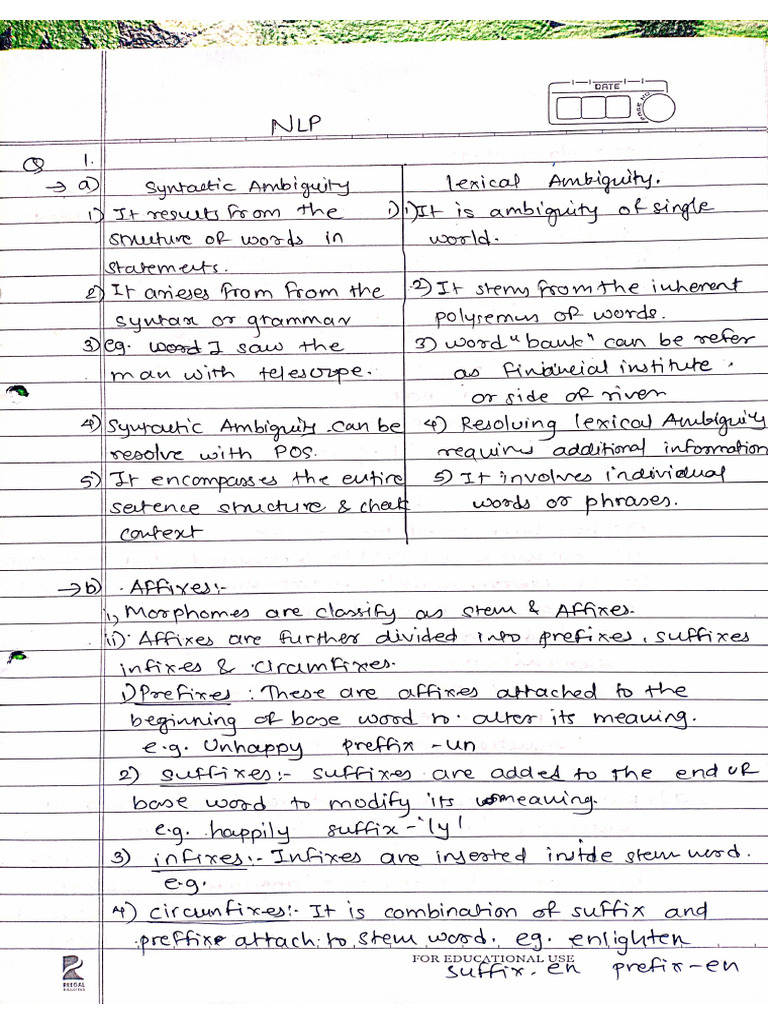 DATE
PAGE NO
NLP
Q 1.
→ a) Syntactic Ambiguity
lexical Ambiguity.
1) It results from the
structure of words in
statements.
1) 1) It is ambiguity of single
world.
2) It arieses from from the
syntax or grammar
2) It stems from the inherent
polysemus of words.
3) eg. word I saw the
man with telescope.
3) word "bank" can be refer
as financial institute.
or side of river
4) Syntactic Ambiguity can be
resolve with POS.
4) Resolving lexical Ambiguity
requires additional information
5) It encompasses the entire
sentence structure & check
context
5) It involves individual
words or phrases.
→ b) Affixes:-
i, Morphomes are classify as stem & Affixes.
ii) Affixes are further divided into prefixes, suffixes
infixes & ciramfixes.
1) Prefixes : These are affixes attached to the
beginning of base word to alter its meaning.
e.g. Unhappy preffix - un
2) suffixes:- suffixes are added to the end of
base word to modify its meaning.
e.g. happily suffix - 'ly'
3) infixes:- Infixes are inserted instide stem word.
e.g.
4) circunfixes:- It is combination of suffix and
preffixe attach to stem word. eg. enlighten
suffix. en prefix - en
REEGAL
FOR EDUCATIONAL USE